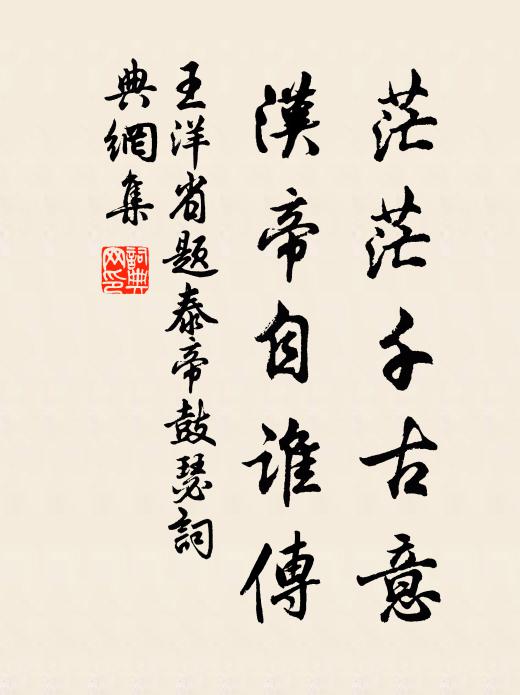 茫茫千古意
漢帝自誰傳
王洋省題泰帝鼓瑟詞
典網集
詞典網印